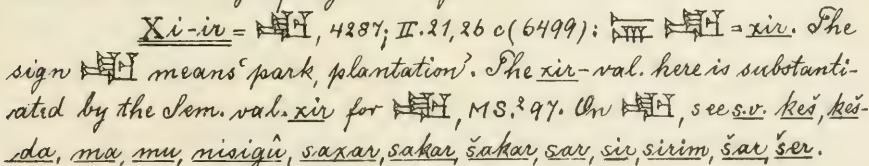 Xi-ir = 𒊬, 4287; II. 21, 26 c (6499): 𒊬 = xir. The
sign 𒊬 means 'park, plantation'. The xir-val. here is substanti-
ated by the Sem. val. xir for 𒊬, MS.² 97. On 𒊬, see s.v. keš, keš-
da, ma, mu, nisigû, saxar, sakar, šakar, sar, sir, sirim, šar šer.